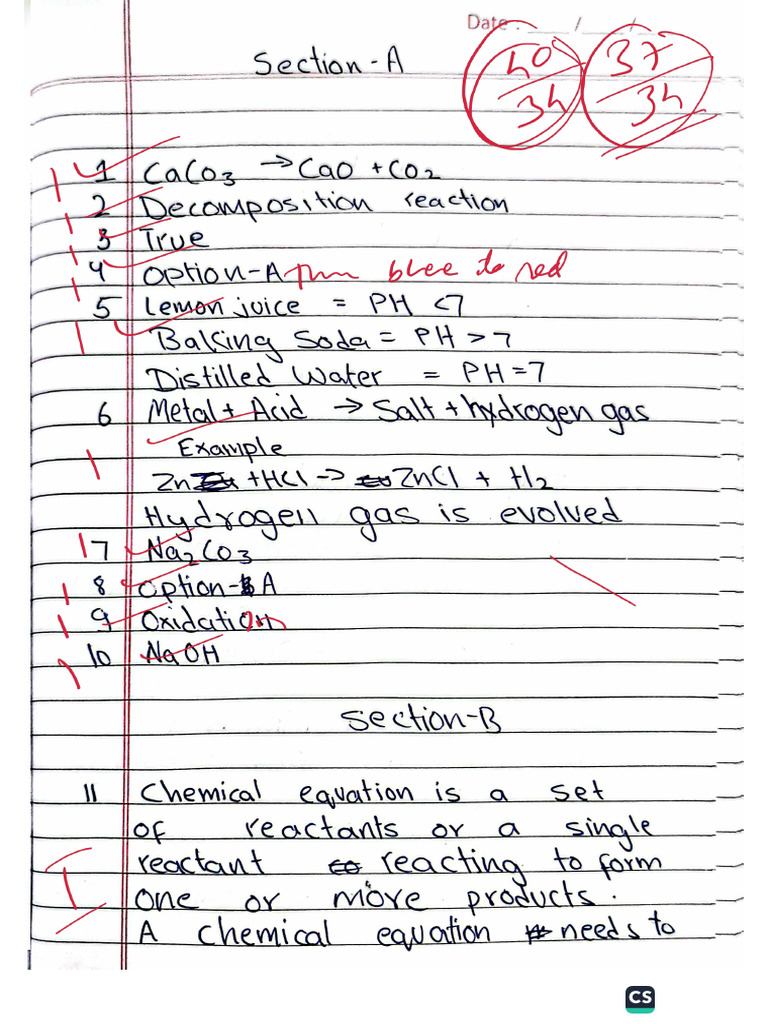 Date : ___ / ___ / 
Section-A
40/34
37/34
1 CaCo3 → CaO + CO2
2 Decomposition reaction
3 True
4 Option-A blee to red
5 Lemon juice = PH <7
Baking Soda = PH > 7
Distilled Water = PH = 7
6 Metal + Acid → Salt + hydrogen gas
Example
Zn + HCl → ZnCl + H2
Hydrogen gas is evolved
7 Na2CO3
8 Option-A
9 Oxidation
10 NaOH
Section-B
11 Chemical equation is a set
of reactants or a single
reactant reacting to form
one or more products.
A chemical equation needs to
CS